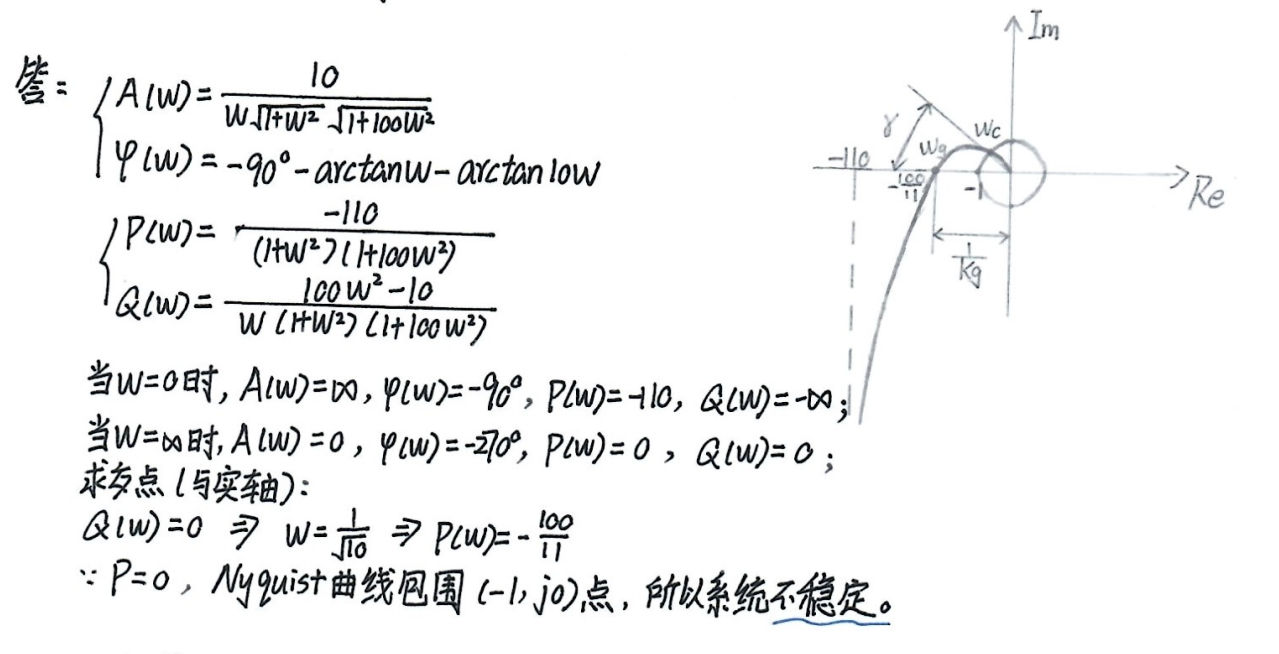 答：
A(w)=10/(w√(1+w²) √(1+100w²))
φ(w)=-90°-arctanw-arctan10w
P(w)=-110/((1+w²)(1+100w²))
Q(w)=(100w²-10)/(w(1+w²)(1+100w²))
当w=0时, A(w)=∞, φ(w)=-90°, P(w)=-110, Q(w)=-∞;
当w=∞时, A(w)=0, φ(w)=-270°, P(w)=0, Q(w)=0;
求交点(与实轴):
Q(w)=0 ⇒ w=1/√10 ⇒ P(w)=-100/11
∵P=0, Nyquist曲线包围(-1,j0)点, 所以系统不稳定。
Im
γ
wg
wc
-110
-100/11
-1
Re
1/Kg